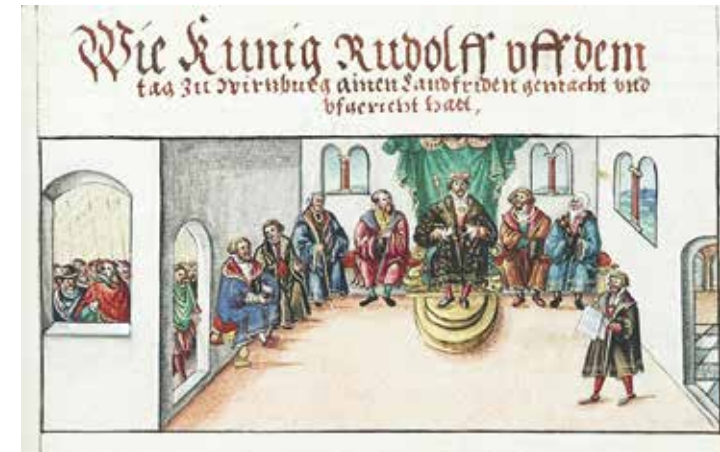 Wie Kunig Rudolff uff dem
tag zu Wirnburg ainen Landfriden gemacht und
ufgericht hatt,